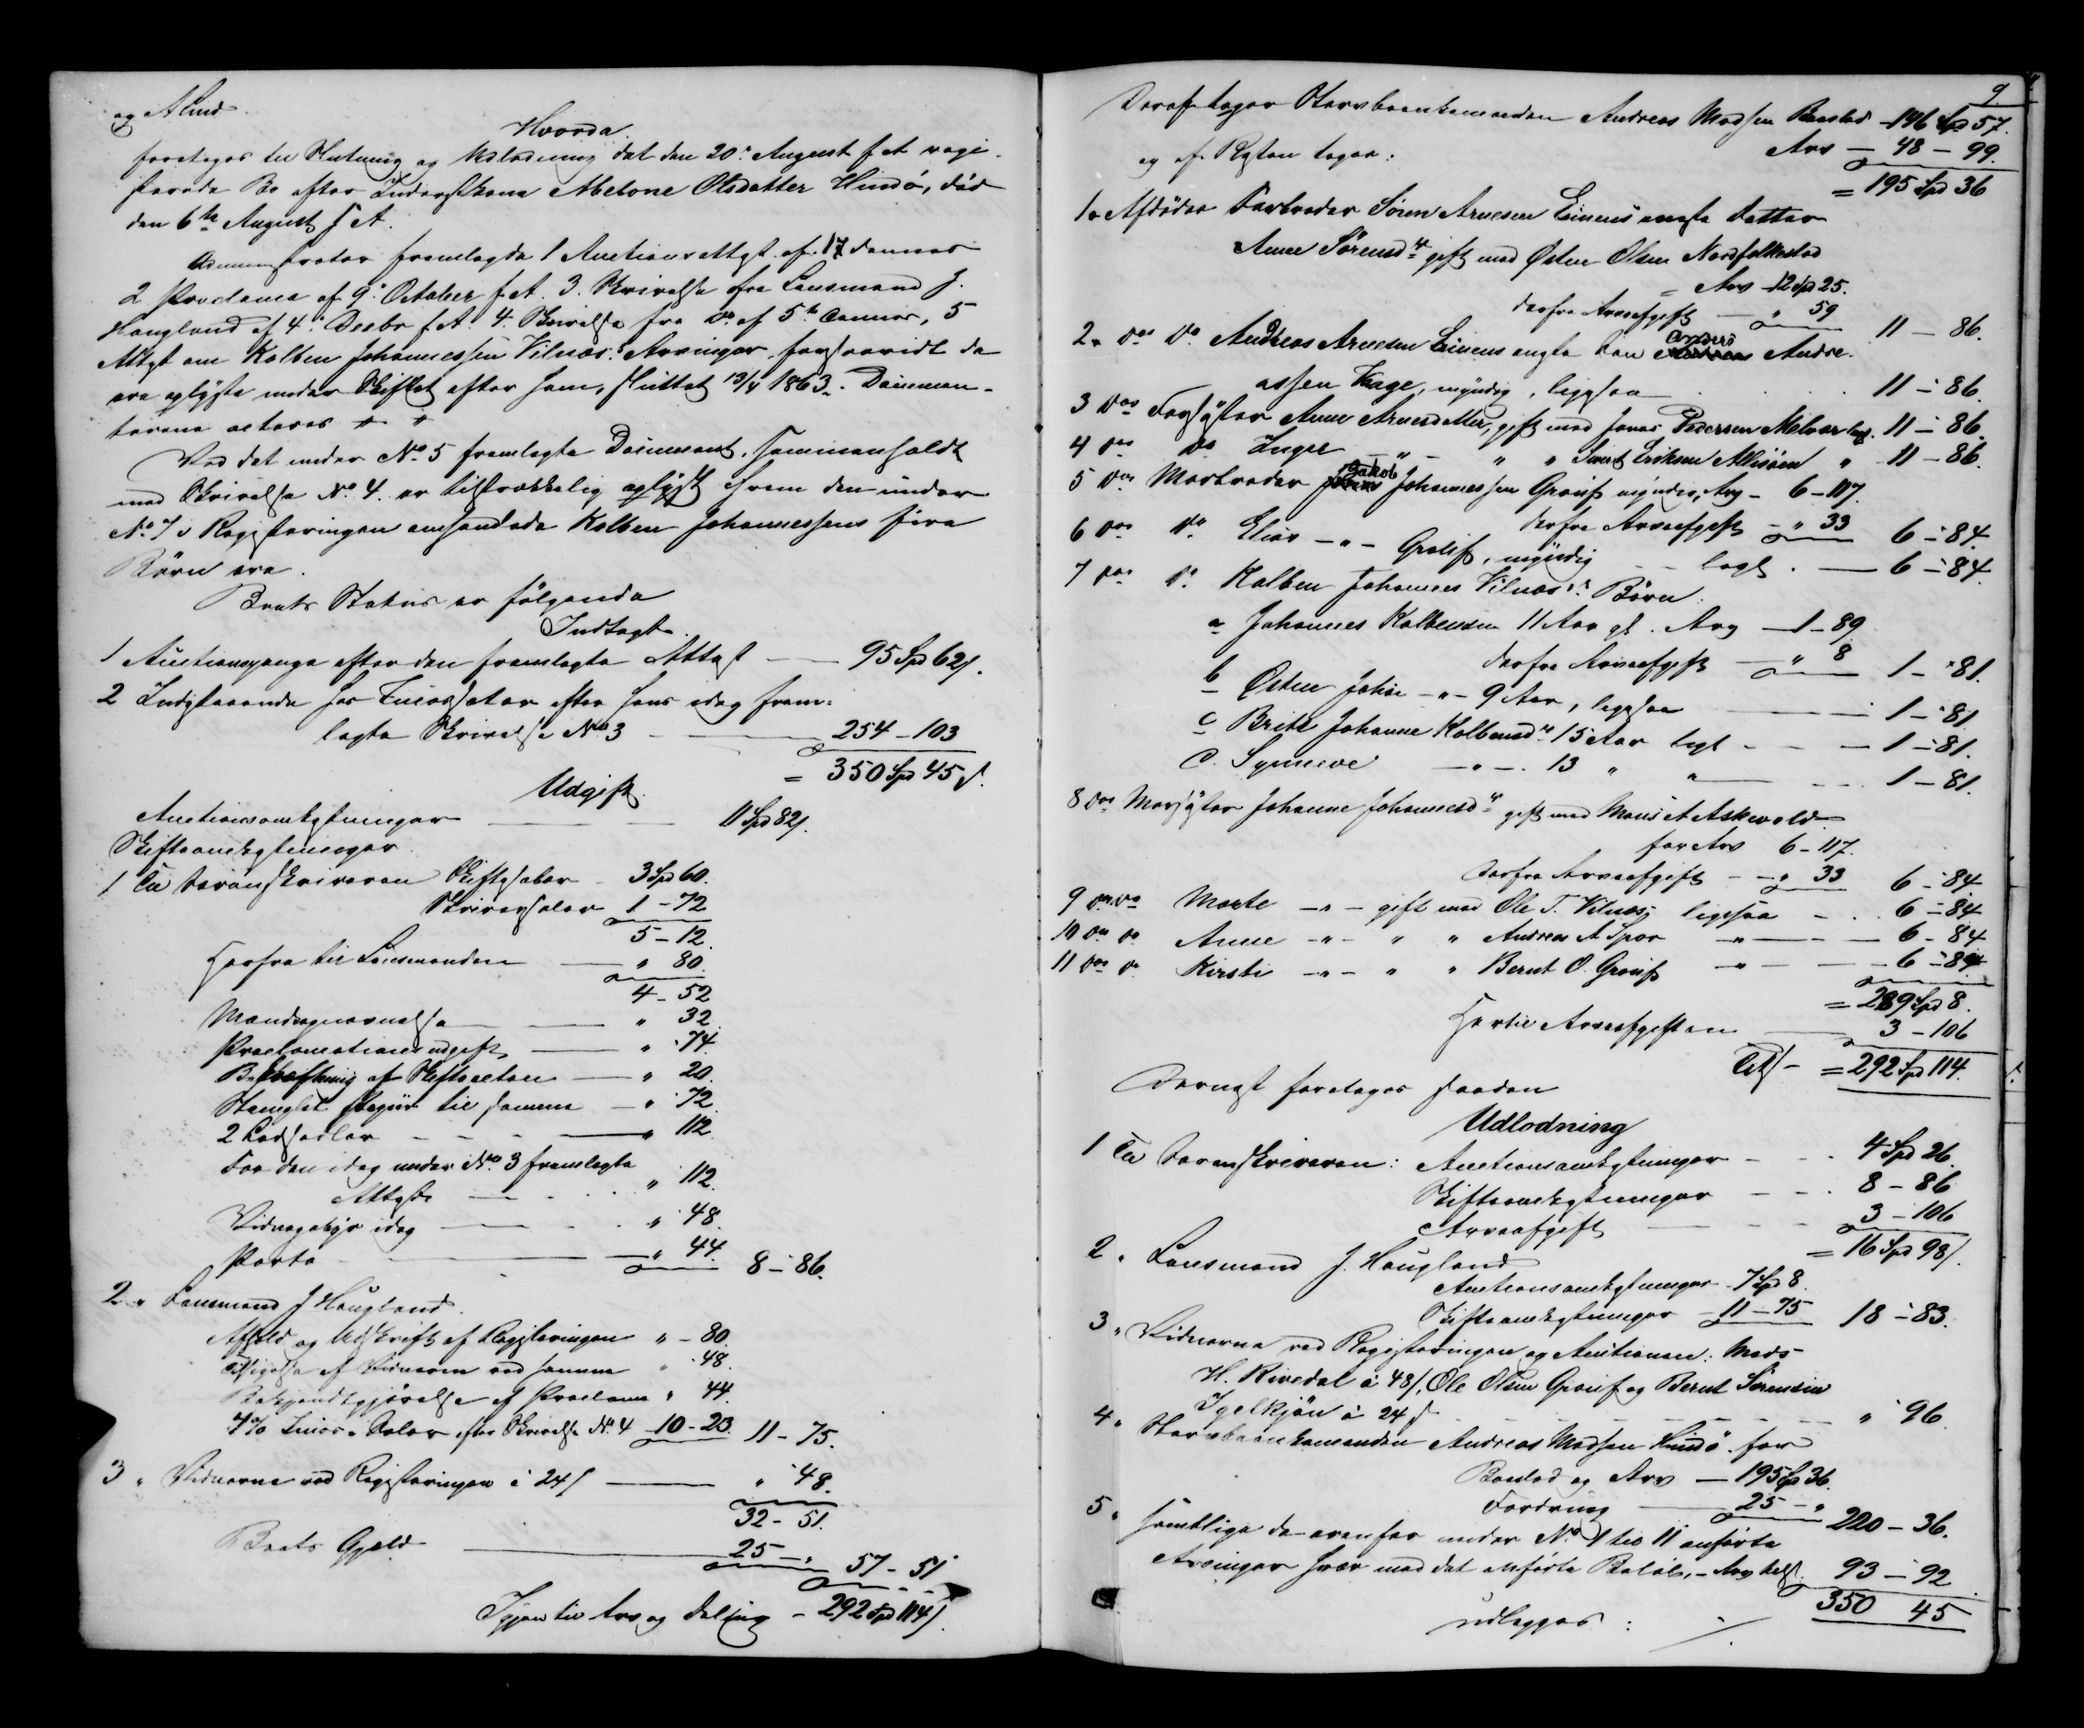 og A Lund.
Hvorda
foretoges til Slutning og Udlodning det den 20de August f. A. regi-
strerede Bo efter Inderstkone Abelone Olsdatter Hindö, död
den 6te August f. A.
Administrator fremlagde 1 Auctions Attest af 17 dennes
2 Proclama af 9de October f. A. 3. Skrivelse fra Lensmand J.
Haugland af 4de Decbr f. A. 4. Skrivelse fra Do. af 5te dennes, 5
Attest om Kolben Johannessen Vilnæs's Arvinger forsaavidt de
ere oplyste under Skiftet efter ham, sluttet 13/4 1863. Documen-
terne acteres
Ved det under No 5 fremlagte Document, sammenholdt
med Skrivelse No. 4. er tilstrækkelig oplyst hvem den under
No. 7 i Registeringen omhandlede Kolben Johannessens fire
Börn ere.
Boets Status er fölgende
Indtægt.
1 Auctionspenge efter den fremlagte Attest — 95 Spd 62 s.
2 Indestaaende hos Incassator efter hans idag frem-
lagte Skrivelse No 3 — 254 - 103
= 350 Spd 45 s.
Udgift.
Auctionsomkostninger — 11 Spd 82 s.
Skifteomkostninger.
1 Til Sorenskriveren Skiftesalær 3 Spd 60.
Skriversalær 1 - 72
5 - 12.
Herfra til Lensmanden — " 80.
4 - 52
Mandsopnævnelse — " 32.
Proclamationsudgift — " 74.
Bekræftning af Skifteacten — " 20.
Stemplet Papiir til samme — " 72.
2 Lodsedler — " 112.
For den idag under No 3 fremlagte
Attest — " 112.
Vidnegebyr idag — " 48.
Porto — " 44. 8 - 86.
2 " Lensmand J Haugland.
Afhold og Udskrift af Registeringen " - 80.
Tilsigelse af Vidnerne ved samme " 48.
Bekjendtgjörelse af Proclama " 44.
4% Incas. Salær efter Skrivelse No. 4 10 - 23. 11 - 75.
3 " Vidnerne ved Registeringen à 24 s — " 48.
32 - 51.
Boets Gjeld — 25 - " 57 - 51
Igjen til Arv og Deling — 292 Spd 114 s.
9.
Deraf tager Stervboenkemanden Andreas Madsen Boeslod — 146 Spd 57.
Arv — 48 - 99.
= 195 Spd 36
og af Resten tager:
1. Afdödes Farbroder Sören Arnesen Einens eneste Datter
Anne Sörensdr gift med Östen Olsen Nordfolkestad
Arv — 12 Spd 25.
derfra Arveafgift — " 59 11 - 86.
2. Des Do. Andreas Arnesen Einens eneste Sön Anders Andre-
assen Krage, myndig, ligesaa 11 - 86.
3 Des Fasöster Anne Arnesdatter, gift med Jonas Pedersen Melvær lige. 11 - 86.
4 Des Do Inger — " — " " Sivert Eriksen Allisöen " 11 - 86.
5 Des Morbroder Jakob Johannessen Grouf myndig, Arv - 6 - 117.
derfra Arveafgift — " 33 6 - 84.
6 Des Do. Elias — " — Grouf, myndig — ligl. — 6 - 84.
7 Des Do. Kolben Johannes Vilnæs's Börn:
a Johannes Kolbensen 11 Aar gl. Arv — 1 - 89
derfra Arveafgift — " 8 1 - 81.
b Östen Johan — " — 9 Aar, ligesaa — 1 - 81
c Brithe Johanne Kolbensdr 15 Aar ligl — 1 - 81.
d. Synneve — " — . 13 " " — 1 - 81.
8 Des Morsöster Johanne Johannesdr gift med Mons A Askvold
for Arv 6 - 117.
derfra Arveafgift — " 33 6 - 84
9 Des Do Marte — " — gift med Ole T. Vilnæs, ligesaa — 6 - 84
10 Des Do Anne — " — " " Andreas A Spor — " — 6 - 84
11 Des Do. Kirsti — " — " " Bernt O. Grouf — " — 6 - 84
= 289 Spd 8.
Hertil Arveafgiften — 3 - 106
Tils — = 292 Spd 114.
Dernæst foretoges saadan
Udlodning
1 Til Sorenskriveren: Auctionsomkostninger — 4 Spd 26.
Skifteomkostninger — 8 - 86
Arveafgift — 3 - 106
= 16 Spd 98 s.
2 " Lensmand J. Haugland
Auctionsomkostninger 7 Spd 8.
Skifteomkostninger — 11 - 75 18 - 83.
3 " Vidnerne ved Registeringen og Auctionen: Mads
H. Rivedal à 48 s, Ole Olsen Grouf og Bernt Sörensen
Igelkjön à 24 s — " 96
4 " Stervboenkemanden Andreas Madsen Hindö for
Boeslod og Arv — 195 Spd 36.
Fordring — 25 - " 220 - 36.
5 " Samtlige de ovenfor under No 1 til 11 anförte
Arvinger hver med det anförte Belöb, — Arv tils. 93 - 92
350 45
udlægges :